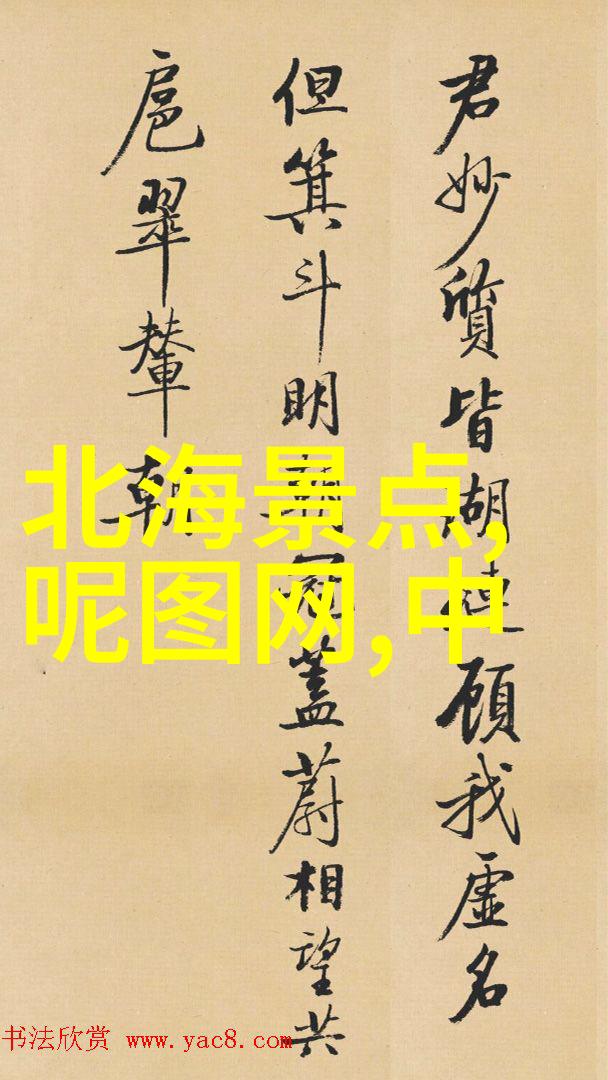 君妙質皆瑚璉顧我虛名
但箕斗明朝冠蓋蔚相望共
扈翠輦朝
北海景点,
呢图网,中
书法欣赏 www.yac8.com